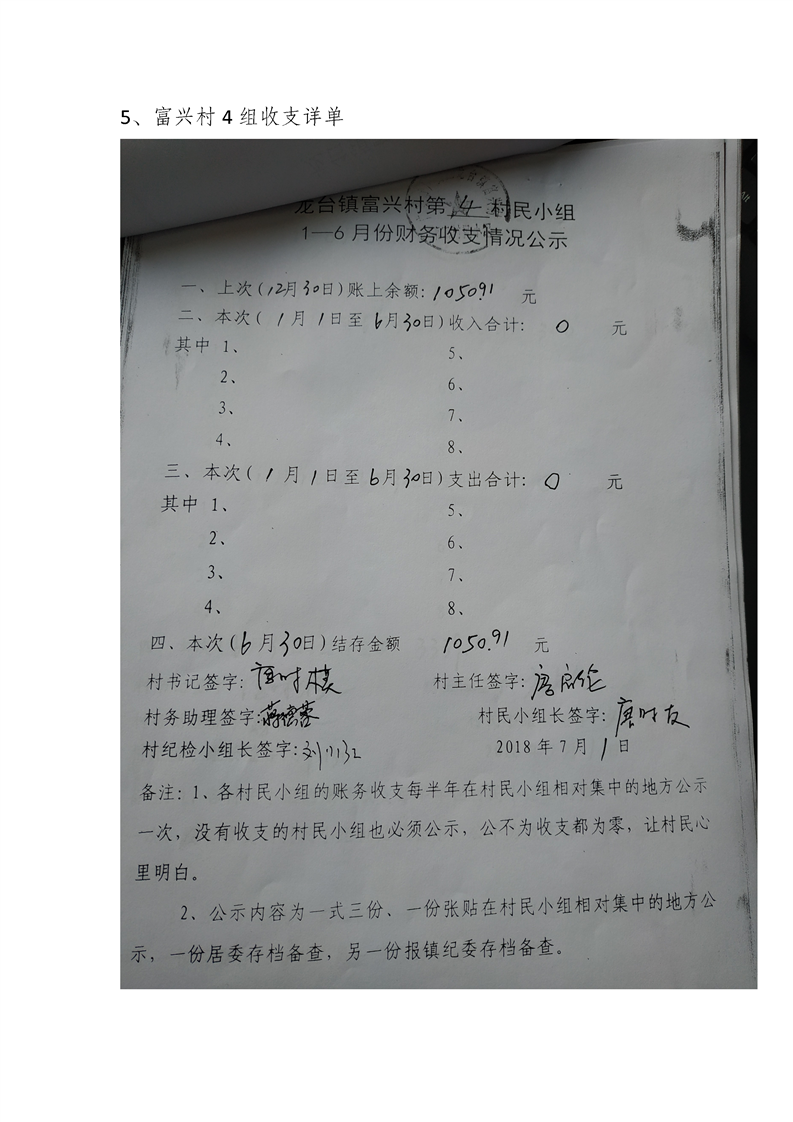 5、富兴村4组收支详单
龙台镇富兴村第 4 村民小组
1—6月份财务收支情况公示
一、上次(12月30日)账上余额: 1050.91 元
二、本次( 1月 1日至 6月30日)收入合计: 0 元
其中 1、 5、
2、 6、
3、 7、
4、 8、
三、本次( 1月 1日至 6月30日)支出合计: 0 元
其中 1、 5、
2、 6、
3、 7、
4、 8、
四、本次(6月30日)结存金额 1050.91 元
村书记签字: 村主任签字:
村务助理签字: 村民小组长签字:
村纪检小组长签字: 2018年7月 1日
备注:1、各村民小组的账务收支每半年在村民小组相对集中的地方公示
一次，没有收支的村民小组也必须公示，公不为收支都为零，让村民心
里明白。
2、公示内容为一式三份、一份张贴在村民小组相对集中的地方公
示，一份居委存档备查，另一份报镇纪委存档备查。